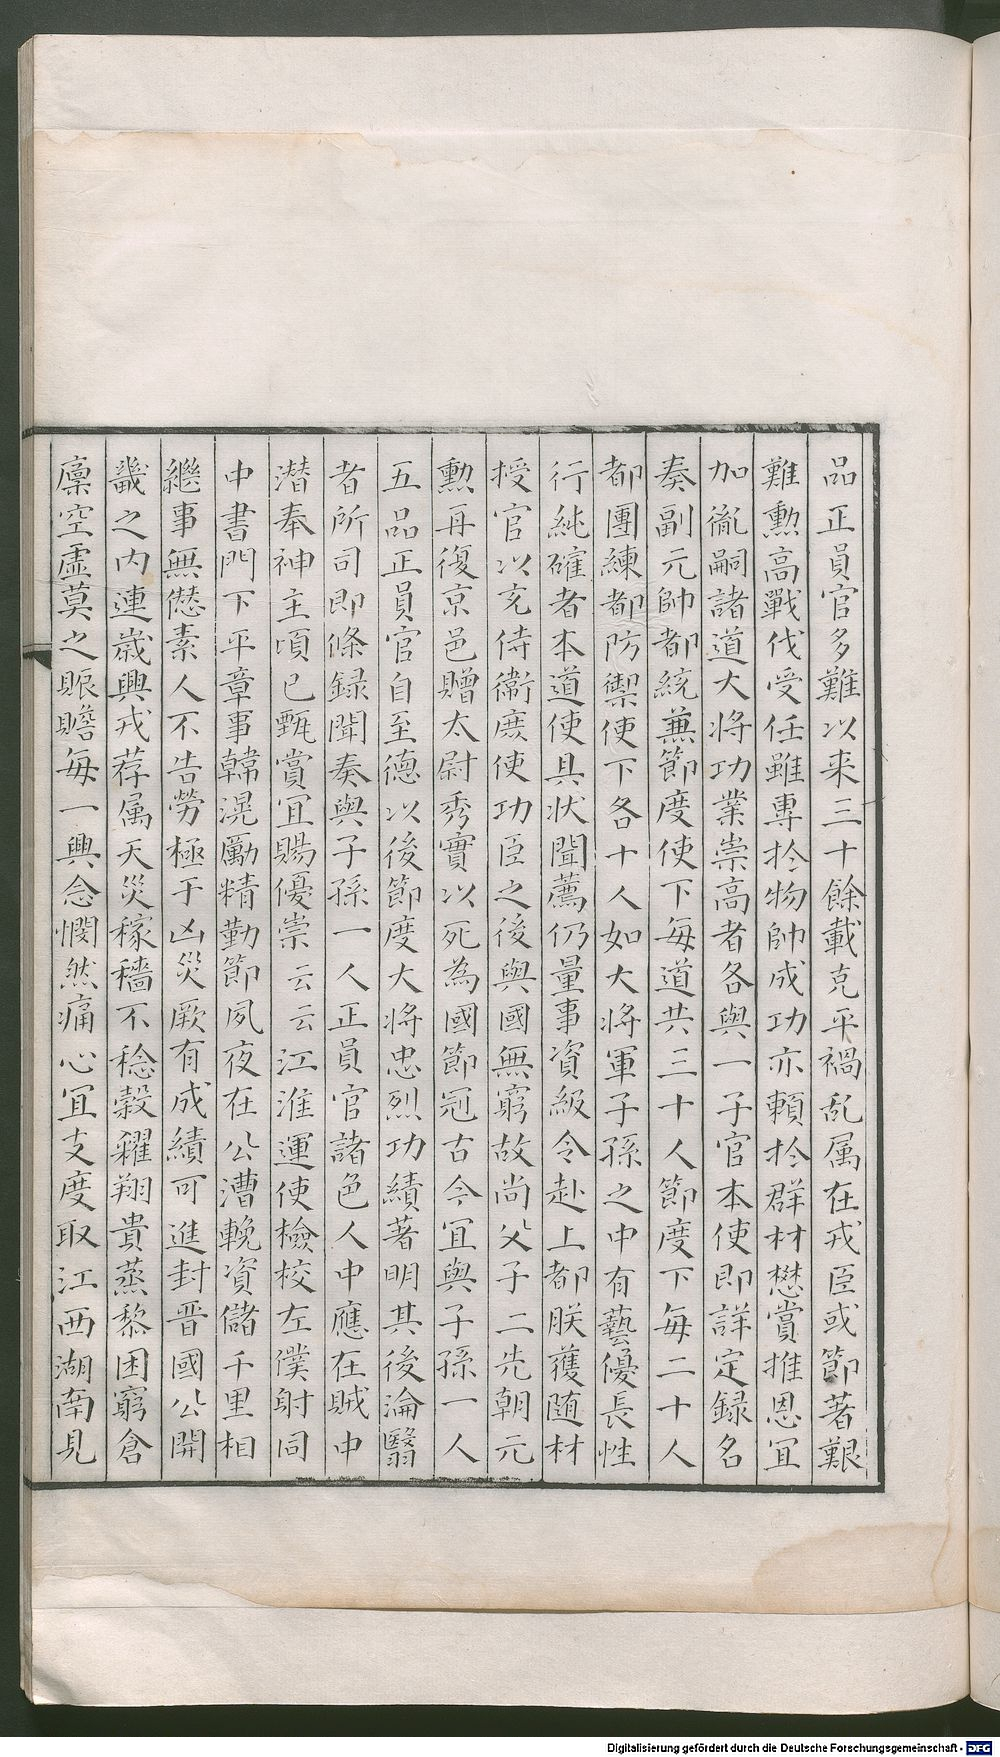 品正員官多難以来三十餘載克平禍乱属在戎臣或節著艱
難勲高戰伐受任雖專扵物帥成功亦頼扵群材懋賞推恩宜
加胤嗣諸道大将功業崇高者各與一子官本使即詳定録名
奏副元帥都統兼節度使下每道共三十人節度下每二十人
都團練都防禦使下各十人如大将軍子孫之中有藝優長性
行純確者本道使具状聞薦仍量事資級令赴上都朕獲随材
授官以充侍衛庻使功臣之後與國無窮故尚父子二先朝元
勲再復京邑贈太尉秀實以死為國節冠古今宜與子孫一人
五品正員官自至德以後節度大将忠烈功績著明其後淪翳
者所司即條録聞奏與子孫一人正員官諸色人中應在賊中
潜奉神主頃已甄賞宜賜優崇云云江淮運使檢校左僕射同
中書門下平章事韓滉勵精勤節夙夜在公漕輓資儲千里相
繼事無愆素人不告勞極于凶災厥有成績可進封晋國公開
畿之内連歲興戎荐属天災稼穡不稔穀糴翔貴蒸黎困窮倉
廩空虚莫之賑贍每一興念憫然痛心宜支度取江西湖南見
Digitalisierung gefördert durch die Deutsche Forschungsgemeinschaft - DFG